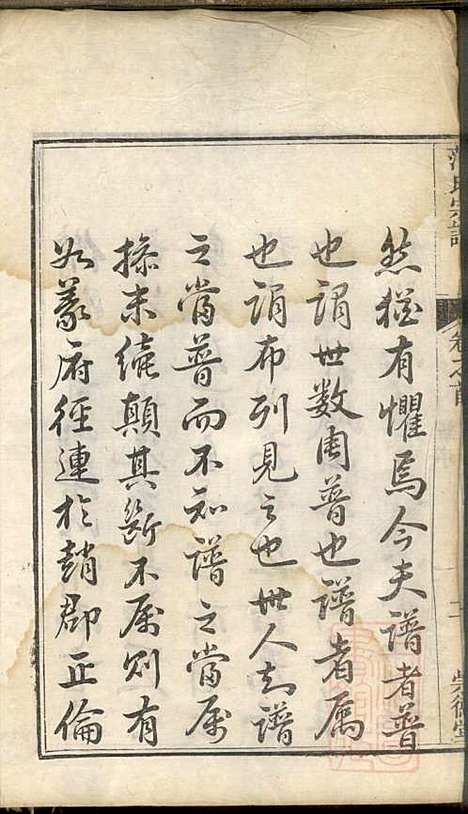 氏宗譜
卷之首
二
然猶有懼焉今夫譜者普
也謂世數周普也譜者屬
也謂布列見之也世人知譜
之當普而不知譜之當屬
採未續顛其斷不屬則有
如義府徑連於趙郡正倫